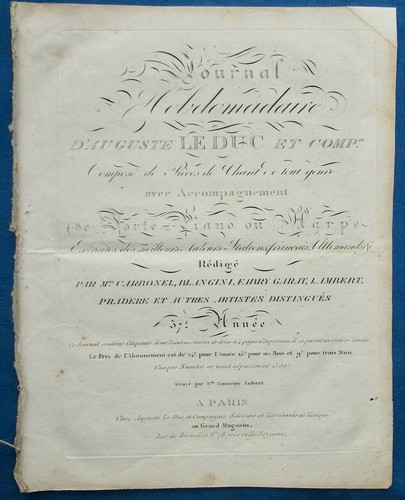 Journal
Hebdomadaire
D'AUGUSTE LE DUC ET COMP.
Composé de Pièces de Chant de tout genre
avec Accompagnement
de Forte-Piano ou Harpe
Extraites des meilleurs Auteurs Italiens, français, Allemands &
Rédigé
PAR M. CARBONEL, BLANGINI, FABRY GARAT, LAMBERT,
PRADERE ET AUTRES ARTISTES DISTINGUÉS
37.e Année
Ce Journal contient Cinquante deux Numéros,
Le Prix de l'Abonnement est de 24 pour l'Année 15 pour six Mois et 9 pour trois Mois
Chaque Numéro se vend séparément
Gravé par
A PARIS
Chez Auguste Le Duc et Compagnie Editeurs et de Musique
au Grand Magasin,
Rue de Richelieu N.º 78 près celle Feydeau,